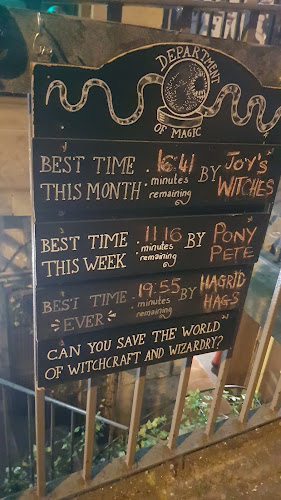 DEPARTMENT
OF MAGIC
BEST TIME THIS MONTH . 16:41 minutes remaining BY JOY'S WITCHES
BEST TIME THIS WEEK . 11:16 minutes remaining BY PONY PETE
BEST TIME EVER . 19:55 minutes remaining BY HAGRID HAGS
CAN YOU SAVE THE WORLD
OF WITCHCRAFT AND WIZARDRY?